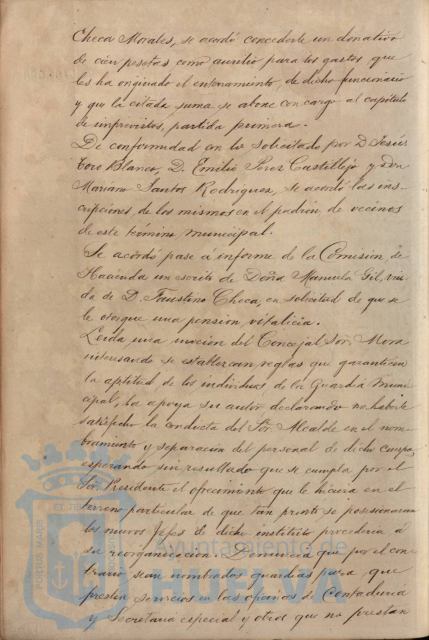 Checa Morales, se acordó concederle un donativo
de cien pesetas como auxilio para los gastos que
les ha originado el enterramiento, de dicho funcionario
y que la citada suma se abone con cargo al capítulo
de imprevistos, partida primera.
De conformidad en lo solicitado por D. Jesús
Toro Blanco, D. Emilio Perez Castillejo y Don
Mariano Santos Rodriguez, se acordó las ins-
cripciones de los mismos en el padrón de vecinos
de este término municipal.
Se acordó pase á informe de la Comisión de
Hacienda un escrito de Doña Manuela Gil, viu-
da de D. Faustino Checa, en solicitud de que se
le otorgue una pensión vitalicia.
Leida una moción del Concejal Sor. Mora
interesando se establezcan reglas que garanticen
la aptitud de los individuos de la Guardia Muni-
cipal, la apoya su autor, declarando no haberle
satisfecho la conducta del Sor. Alcalde en el nom-
bramiento y separación del personal de dicho cuerpo,
esperando sin resultado que se cumpla por el
Sor. Presidente el ofrecimiento que le hiciera en el
terreno particular de que tan pronto se posesionaran
los nuevos Jefes de dicho instituto procederia á
su reorganización. Denuncia que por el con-
trario sean nombrados guardias para que
presten servicios en las oficinas de Contaduria
y Secretaria especial y otros que no prestan
PORTUS MARIS
ET TERRAE
Ayuntamiento de
HUELVA